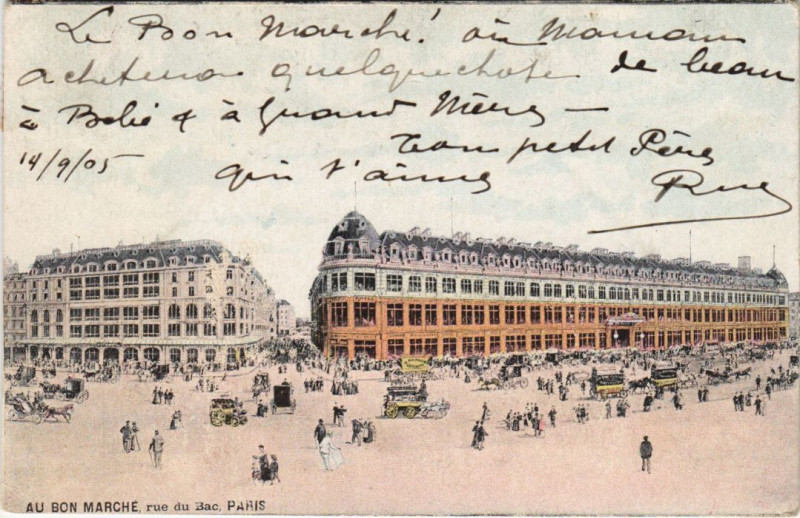 Le Bon Marché! où Maman
achetera quelquechose de beau
à Bébé & à Grand Mère —
14/9/05
ton petit Père
qui t'aime
AU BON MARCHÉ, rue du Bac, PARIS